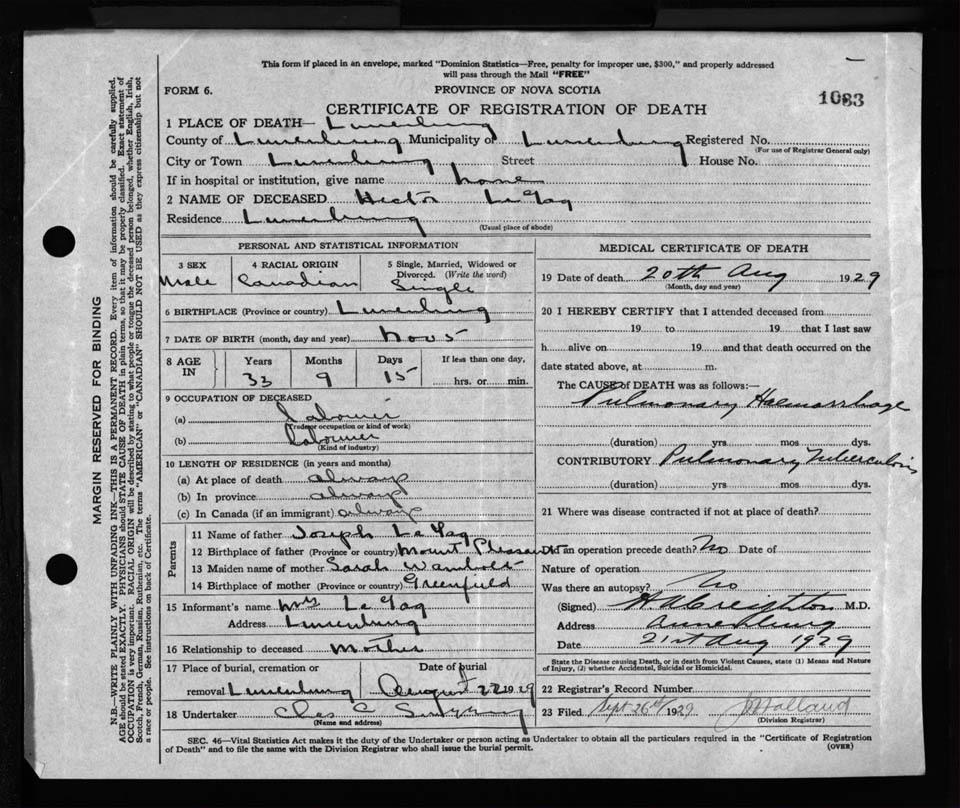 This form if placed in an envelope, marked "Dominion Statistics—Free, penalty for improper use, $300," and properly addressed
will pass through the Mail "FREE"
FORM 6.
PROVINCE OF NOVA SCOTIA
1083
CERTIFICATE OF REGISTRATION OF DEATH
1 PLACE OF DEATH— Lunenburg
County of Lunenburg Municipality of Lunenburg Registered No.
(For use of Registrar General only)
City or Town Lunenburg Street House No.
If in hospital or institution, give name home
2 NAME OF DECEASED Hector
Residence Lunenburg
(Usual place of abode)
PERSONAL AND STATISTICAL INFORMATION
3 SEX
Male
4 RACIAL ORIGIN
Canadian
5 Single, Married, Widowed or
Divorced. (Write the word)
Single
6 BIRTHPLACE (Province or country) Lunenburg
7 DATE OF BIRTH (month, day and year) Nov 5
8 AGE IN
Years Months Days If less than one day,
33 9 15 hrs. or min.
9 OCCUPATION OF DECEASED
(a) Labourer
(Trade or occupation or kind of work)
(b) Labourer
(Kind of industry)
10 LENGTH OF RESIDENCE (in years and months)
(a) At place of death always
(b) In province always
(c) In Canada (if an immigrant) always
Parents
11 Name of father Joseph
12 Birthplace of father (Province or country) Mount Pleasant
13 Maiden name of mother Sarah
14 Birthplace of mother (Province or country) Greenfield
15 Informant's name Mrs
Address Lunenburg
16 Relationship to deceased Mother
17 Place of burial, cremation or Date of burial
removal Lunenburg August 22 1929
18 Undertaker Chas
(Name and address)
MEDICAL CERTIFICATE OF DEATH
19 Date of death 20th Aug 1929
(Month, day and year)
20 I HEREBY CERTIFY that I attended deceased from
19 to 19 that I last saw
h alive on 19 and that death occurred on the
date stated above, at m.
The CAUSE of DEATH was as follows:—
Pulmonary Haemorrhage
(duration) yrs mos dys.
CONTRIBUTORY Pulmonary Tuberculosis
(duration) yrs mos dys.
21 Where was disease contracted if not at place of death?
Did an operation precede death? No Date of
Nature of operation
Was there an autopsy? No
(Signed) Creighton M.D.
Address Lunenburg
Date 21st Aug 1929
State the Disease causing Death, or in death from Violent Causes, state (1) Means and Nature
of Injury, (2) whether Accidental, Suicidal or Homicidal.
22 Registrar's Record Number
23 Filed Sept 26th 1929 Holland
(Division Registrar)
SEC. 46—Vital Statistics Act makes it the duty of the Undertaker or person acting as Undertaker to obtain all the particulars required in the "Certificate of Registration
of Death" and to file the same with the Division Registrar who shall issue the burial permit.
(OVER)
MARGIN RESERVED FOR BINDING
N.B.—WRITE PLAINLY WITH UNFADING INK—THIS IS A PERMANENT RECORD. Every item of information should be carefully supplied.
AGE should be stated EXACTLY. PHYSICIANS should STATE CAUSE OF DEATH in plain terms, so that it may be properly classified. Exact statement of
OCCUPATION is very important. RACIAL ORIGIN will be described by stating to what people or tongue the deceased person belonged, whether English, Irish,
Scotch, French, German, Russian, Ruthenian, etc. The terms "AMERICAN" or "CANADIAN" SHOULD NOT BE USED as they express citizenship but not
a race or people. See instructions on back of Certificate.